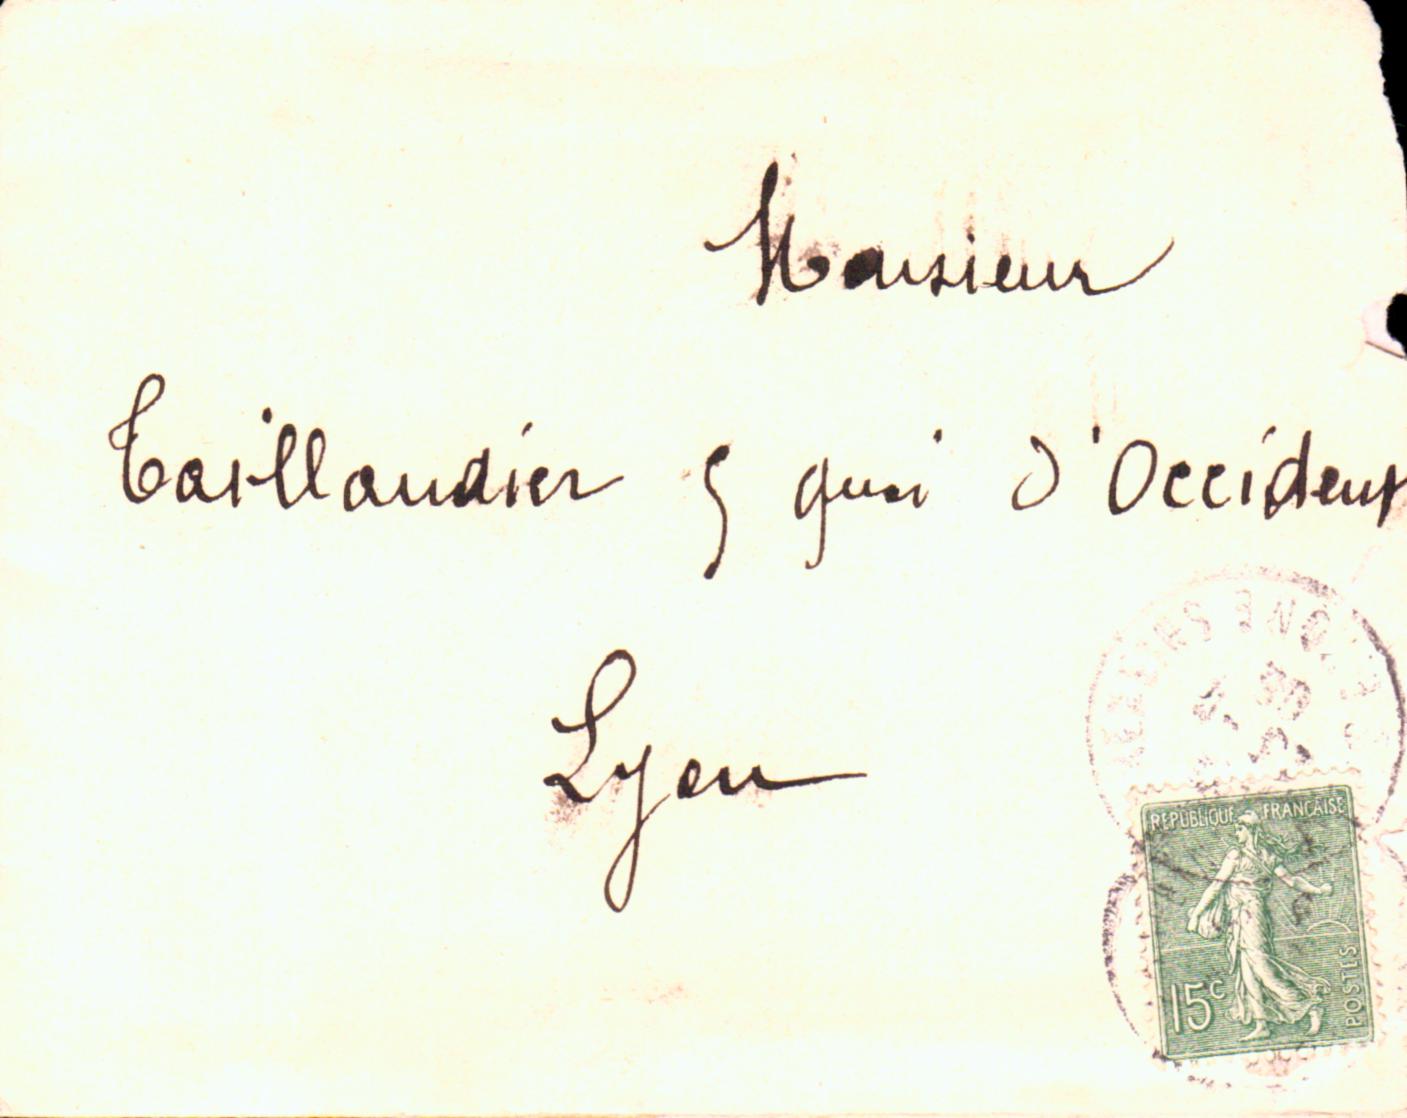 Monsieur
Taillandier 5 quai d'Occident
Lyon
REPUBLIQUE FRANCAISE
15c
POSTES